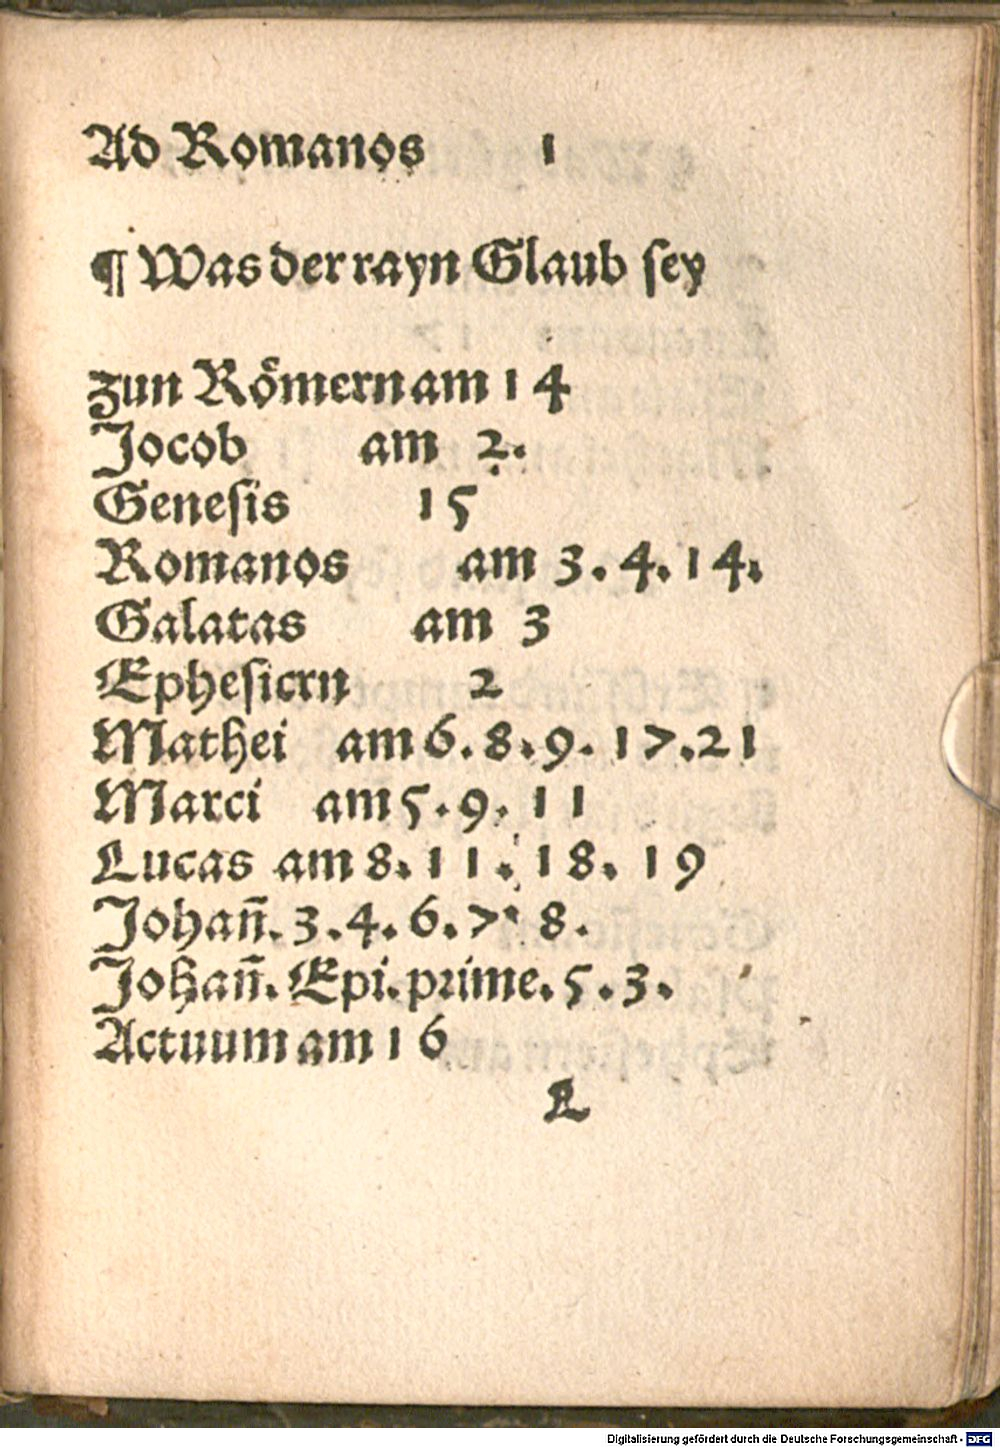 Ad Romanos 1
¶ Was der rayn Glaub sey
zun Römern am 14
Jocob am 2.
Genesis 15
Romanos am 3. 4. 14.
Galatas am 3
Ephesiern 2
Mathei am 6. 8. 9. 17. 21
Marci am 5. 9. 11
Lucas am 8. 11. 18. 19
Johan̄. 3. 4. 6. 7. 8.
Johan̄. Epi. prime. 5. 3.
Actuum am 16
A
Digitalisierung gefördert durch die Deutsche Forschungsgemeinschaft - DFG